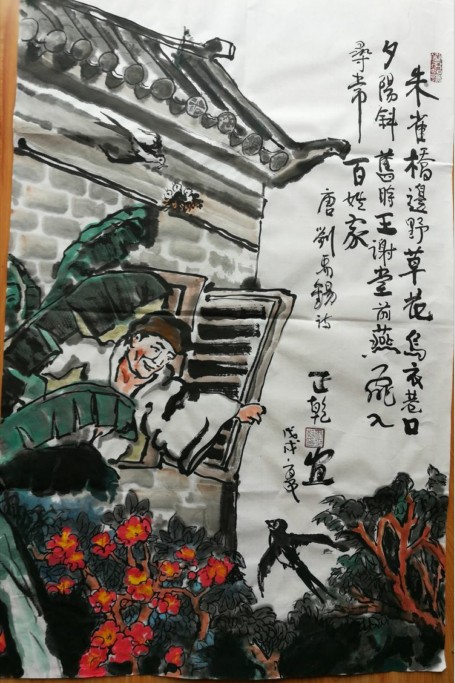 朱雀橋邊野草花烏衣巷口
夕陽斜舊時王謝堂前燕飛入
尋常百姓家
唐劉禹錫詩
正乾
戊戌